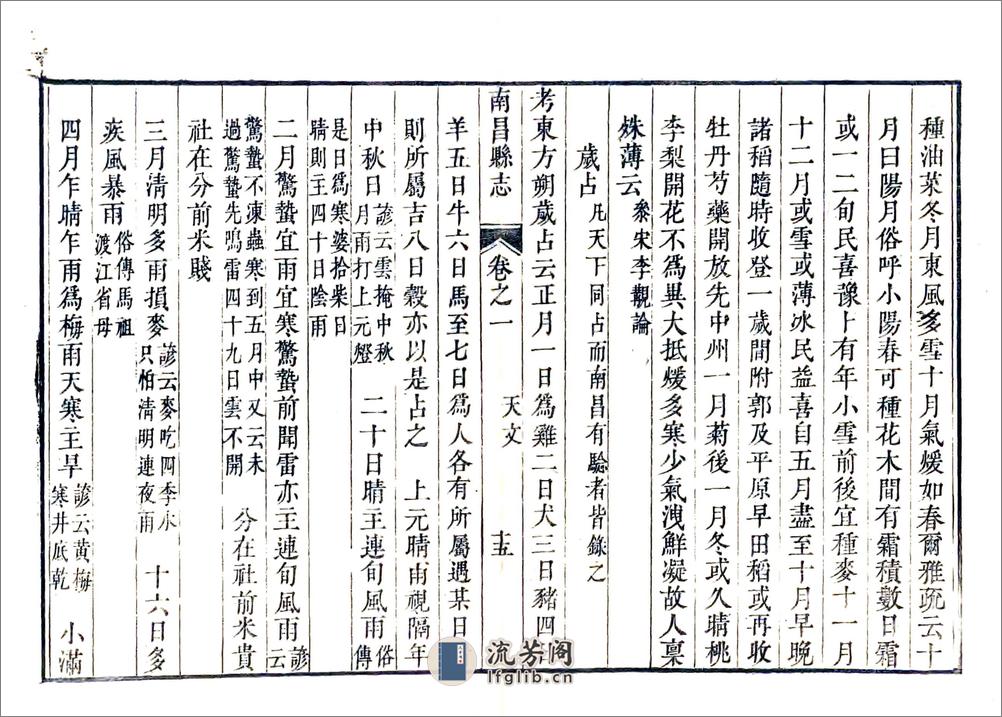 種油菜冬月東風多雪十月氣煖如春爾雅疏云十
月曰陽月俗呼小陽春可種花木間有霜積數日霜
或一二旬民喜豫卜有年小雪前後宜種麥十一月
十二月或雪或薄冰民益喜自五月盡至十月早晚
諸稻隨時收登一歲間附郭及平原早田稻或再收
牡丹芍藥開放先中州一月菊後一月冬或久晴桃
李梨開花不為異大抵煖多寒少氣洩鮮凝故人稟
姝薄云
叅宋李觀論
歲占
凡天下同占而南昌有驗者皆錄之
考東方朔歲占云正月一日為雞二日犬三日豬四日
南昌縣志
卷之一
天文
十五
羊五日牛六日馬至七日為人各有所屬遇某日
則所屬吉八日穀亦以是占之
上元晴雨視隔年
中秋日
諺云雲掩中秋
月雨打上元燈
二十日晴主連旬風雨
俗傳
是日為寒婆拾柴日
晴則主四十日陰雨
二月驚蟄宜雨宜寒驚蟄前聞雷亦主連旬風雨
諺云
驚蟄不凍蟲寒到五月中又云未
過驚蟄先鳴雷四十九日雲不開
分在社前米貴
社在分前米賤
三月清明多雨損麥
諺云麥吃四季水
只怕清明連夜雨
十六日多
疾風暴雨
俗傳馬祖
渡江省母
四月乍晴乍雨為梅雨天寒主旱
諺云黃梅
寒井底乾
小滿
流芳阁
lfglib.cn